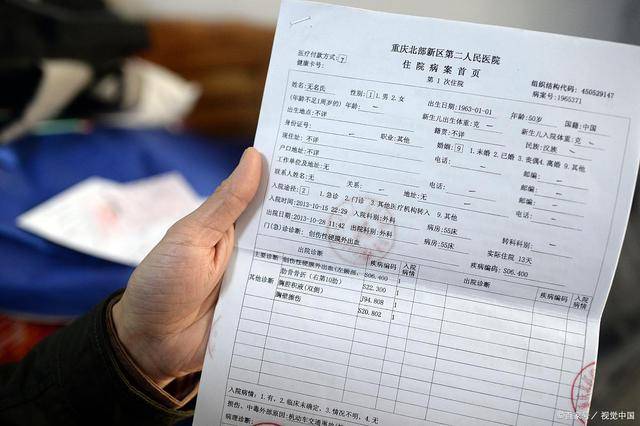 重庆北部新区第二人民医院
医疗付款方式:7
健康卡号:
住院病案首页
第 1 次住院
组织结构代码: 450529147
病案号:1965371
姓名:无名氏 性别:1 1.男 2.女 出生日期:1963-01-01 年龄:50岁 国籍:中国
(年龄不足1周岁的) 年龄: — 新生儿出生体重:克 — 新生儿入院体重:克 —
出生地点:不详 籍贯:不详 民族:汉族
身份证号: — 职业:其他 婚姻:9 1.未婚 2.已婚 3.丧偶4.离婚 9.其他
现住址:不详 电话: — 邮编: —
户口地址:不详 邮编: —
工作单位及地址:无 电话: — 邮编: —
联系人姓名:无 关系: — 地址:无 电话: —
入院途径:2 1.急诊 2.门诊 3.其他医疗机构转入 9.其他
入院时间:2013-10-15 22:29 入院科别:外科 病房:55床 转科科别: —
出院日期:2013-10-28 11:42 出院科别:外科 病房:55床 实际住院 13天
门(急)诊诊断: 创伤性硬膜外出血 疾病编码:S06.400
出院诊断 疾病编码 入院病情 出院诊断 疾病编码 入院病情
主要诊断 创伤性硬膜外出血(左颞部, S06.400 1
其他诊断 肋骨骨折(右第10肋) S22.300 1
胸腔积液(双侧) J94.808 1
胸壁擦伤 S20.802 1
入院病情: 1.有, 2.临床未确定, 3.情况不明, 4.无
损伤、中毒外部原因:机动车交通事故
病理诊断:
©百家号/视觉中国